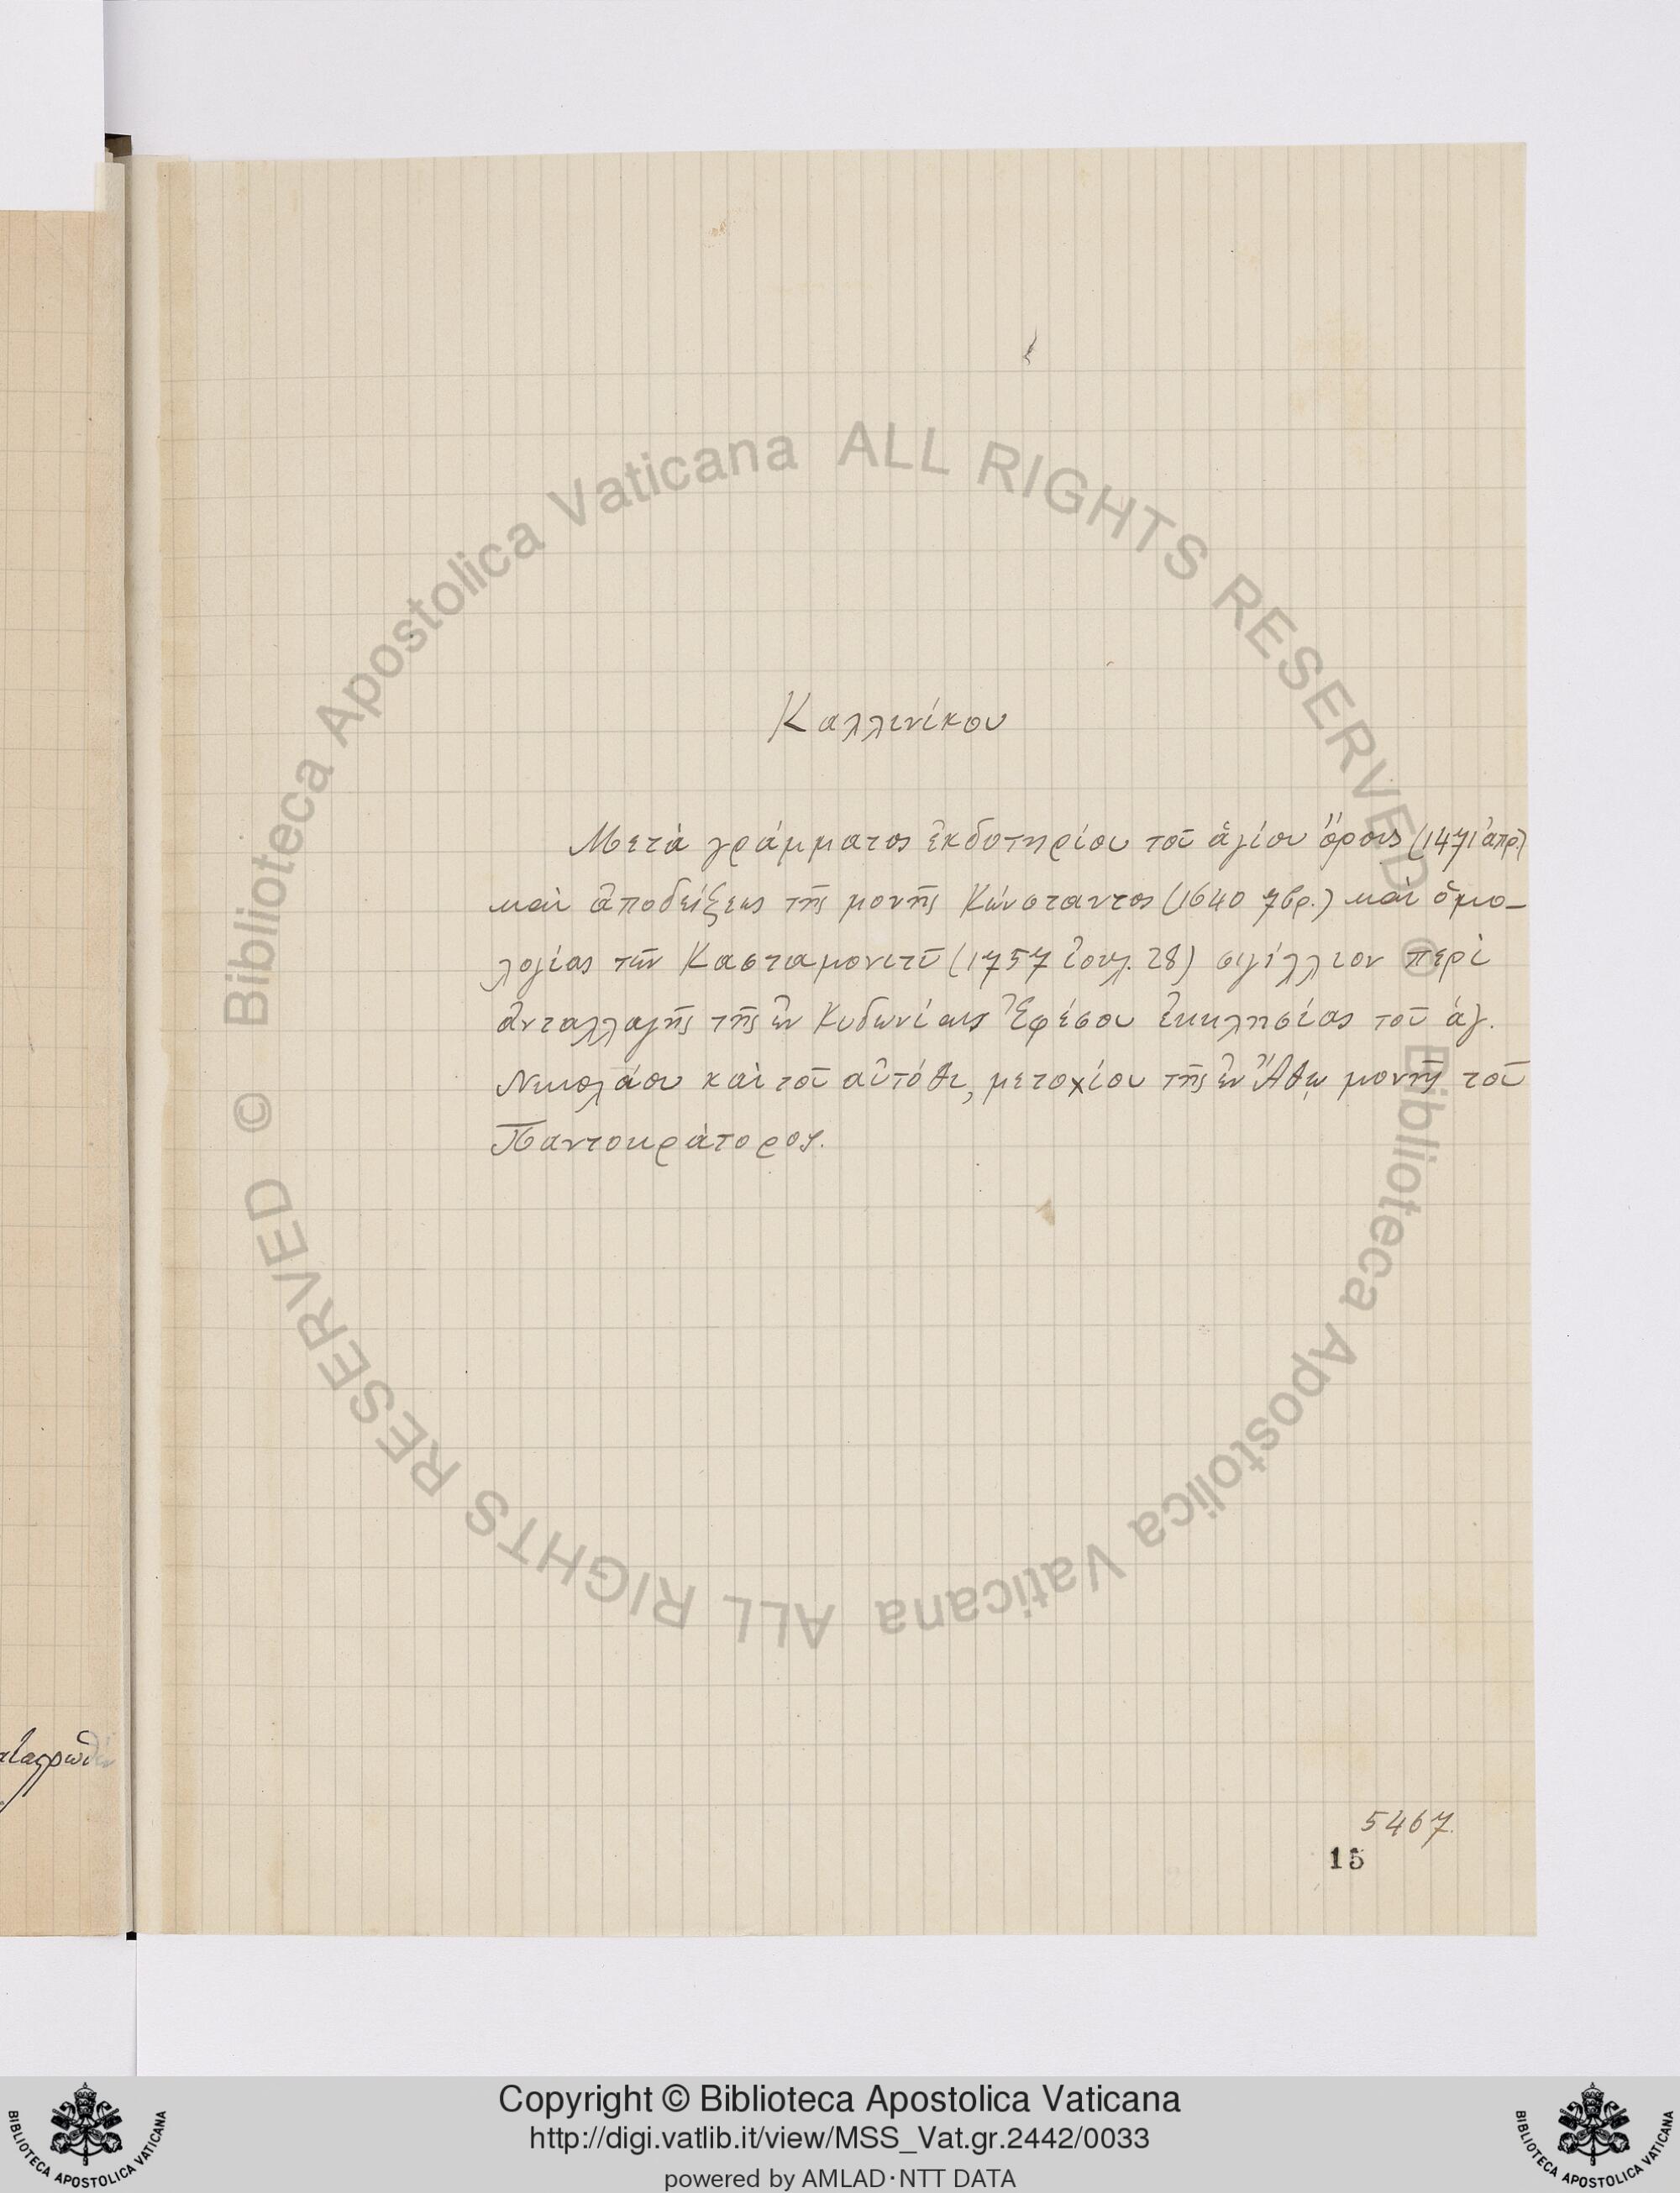 Καλλινίκου
Μετὰ γράμματος ἐκδοτηρίου τοῦ ἁγίου ὄρους (1471 ἀπρ.)
καὶ ἀποδείξεως τῆς μονῆς Κώνσταντος (1640 7βρ.) καὶ ὁμο-
λογίας τῶν Κασταμονιτῶ (1757 ἰουλ. 28) σιγίλλιον περὶ
ἀνταλλαγῆς τῆς ἐν Κυδωνίαις Ἐφέσου ἐκκλησίας τοῦ ἁγ.
Νικολάου καὶ τοῦ αὐτόθι, μετοχίου τῆς ἐν Ἄθῳ μονῆς τοῦ
Παντοκράτορος.
5467.
15
Copyright © Biblioteca Apostolica Vaticana
http://digi.vatlib.it/view/MSS_Vat.gr.2442/0033
powered by AMLAD·NTT DATA
BIBLIOTECA APOSTOLICA VATICANA
BIBLIOTECA APOSTOLICA VATICANA
© Biblioteca Apostolica Vaticana ALL RIGHTS RESERVED
© Biblioteca Apostolica Vaticana ALL RIGHTS RESERVED